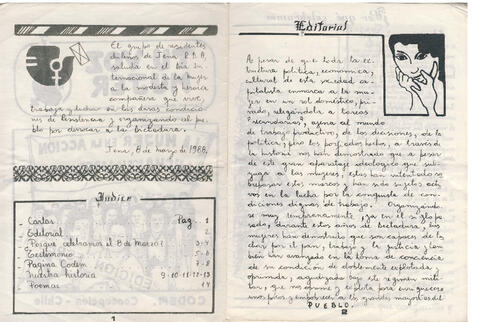 El grupo de residentes
chilenos de Jena R.D.A.
saluda en el Día In-
ternacional de la Mujer
a la modesta y heroica
compañera que vive,
trabaja y lucha en las duras condicio-
nes de la resistencia y organizando al pue-
blo por derrocar a la dictadura.
Jena, 8 de marzo de 1988.
Indice
Pag.
Cartas 1
Editorial 2
Porque celebramos el 8 de Marzo? 3-4
Testimonio 5-6
Pagina Codem 7-8
Nuestra historia 9-10-11-12-13
Poemas 14
1
Editorial
A pesar de que toda la es-
tructura política, económica,
cultural de esta sociedad ca-
pitalista enmarca a la mu-
jer en un rol doméstico, pri-
vado, relegándola a tareas
"secundarias", ajena al mundo
de trabajo productivo, de las decisiones, de la
política; pero los porfiados hechos, a través de
la historia nos han demostrado que a pesar
de este gran aparataje ideologico que sub-
yuga a las mujeres, estas han intentado so-
brepasar estos marcos y han sido sujetos acti-
vos en la lucha por la conquista de condi-
ciones dignas de trabajo. Organizando-
se muy tempranamente, ya en el siglo pa-
sado, durante estos años de dictadura, las
mujeres han demostrado que son capaces de lu-
char por el pan, trabajo y la justicia y tam-
bién han avanzado en la toma de conciencia
de su condición de doblemente explotada y
oprimida, agudizada bajo este regimen mili-
tar, que nos oprime y explota para enriquecer a
unos pocos y empobrecer a las grandes mayorías del
PUEBLO.
2